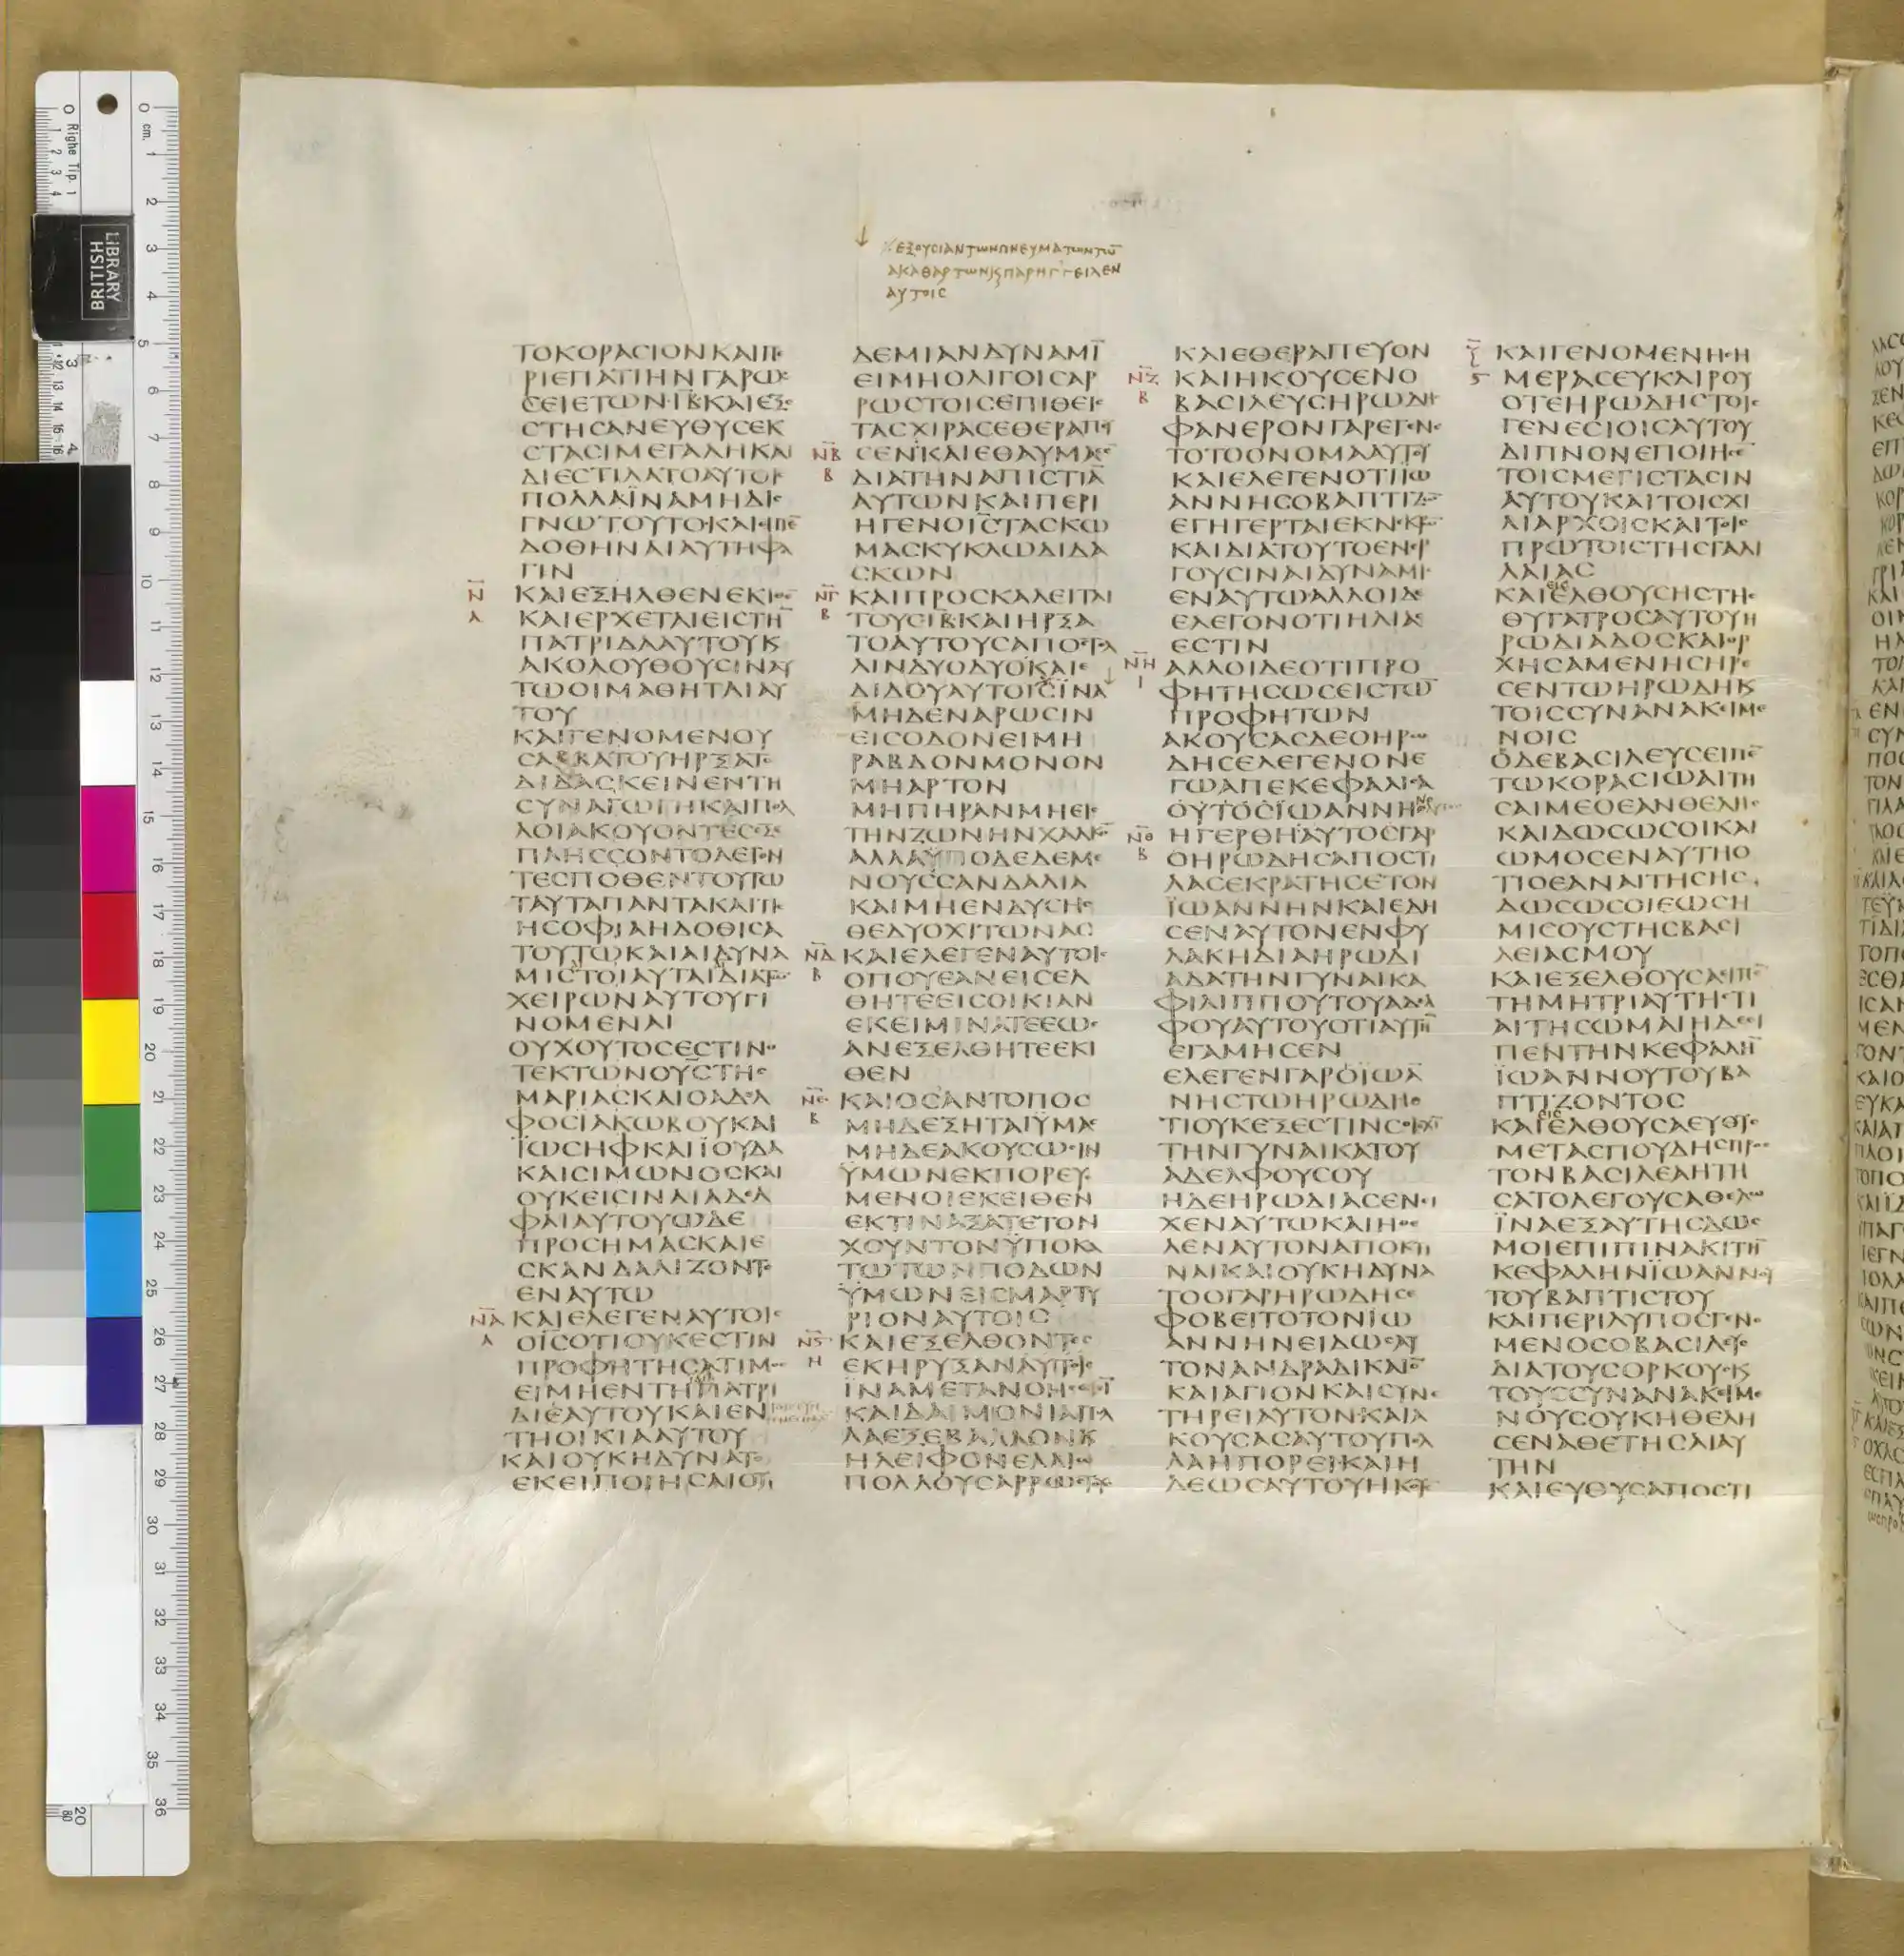 ΕΞΟΥCΙΑΝΤΩΝΠΝΕΥΜΑΤΩΝΤΩ̅
ΑΚΑΘΑΡΤΩΝϏΠΑΡΗΓΓΕΙΛΕΝ
ΑΥΤΟΙC
ΤΟΚΟΡΑCΙΟΝΚΑΙΠΕ
ΡΙΕΠΑΤΙΗΝΓΑΡΩ
CΕΙΕΤΩΝΙΒΚΑΙΕΞΕ
CΤΗCΑΝΕΥΘΥCΕΚ
CΤΑCΙΜΕΓΑΛΗΚΑΙ
ΔΙΕCΤΙΛΑΤΟΑΥΤΟΙC
ΠΟΛΛΑΪΝΑΜΗΔΙC
ΓΝΩΤΟΥΤΟΚΑΙΕΙΠΕ̅
ΔΟΘΗΝΑΙΑΥΤΗΦΑ
ΓΙΝ
Ν̅
Α
ΚΑΙΕΞΗΛΘΕΝΕΚΙΘΕ̅
ΚΑΙΕΡΧΕΤΑΙΕΙCΤΗ̅
ΠΑΤΡΙΔΑΑΥΤΟΥΚ
ΑΚΟΛΟΥΘΟΥCΙΝΑΥ
ΤΩΟΙΜΑΘΗΤΑΙΑΥ
ΤΟΥ
ΚΑΙΓΕΝΟΜΕΝΟΥ
CΑΒΒΑΤΟΥΗΡΞΑΤΟ
ΔΙΔΑCΚΕΙΝΕΝΤΗ
CΥΝΑΓΩΓΗΚΑΙΠΟΛ
ΛΟΙΑΚΟΥΟΝΤΕCΕΞΕ
ΠΛΗCCΟΝΤΟΛΕΓΟΝ
ΤΕCΠΟΘΕΝΤΟΥΤΩ
ΤΑΥΤΑΠΑΝΤΑΚΑΙΤΙC
ΗCΟΦΙΑΗΔΟΘΙCΑ
ΤΟΥΤΩΚΑΙΑΙΔΥΝΑ
ΜΙCΤΟΙΑΥΤΑΙΔΙΑΤΩ̅
ΧΕΙΡΩΝΑΥΤΟΥΓΙ
ΝΟΜΕΝΑΙ
ΟΥΧΟΥΤΟCΕCΤΙΝΟ
ΤΕΚΤΩΝΟΥCΤΗC
ΜΑΡΙΑCΚΑΙΟΑΔΕΛ
ΦΟCΪΑΚΩΒΟΥΚΑΙ
ΪΩCΗΦΚΑΙΪΟΥΔΑ
ΚΑΙCΙΜΩΝΟCΚΑΙ
ΟΥΚΕΙCΙΝΑΙΑΔΕΛ
ΦΑΙΑΥΤΟΥΩΔΕ
ΠΡΟCΗΜΑCΚΑΙΕ
CΚΑΝΔΑΛΙΖΟΝΤΟ
ΕΝΑΥΤΩ
Ν̅Α̅
Α
ΚΑΙΕΛΕΓΕΝΑΥΤΟΙC
ΟΙC̅ΟΤΙΟΥΚΕCΤΙΝ
ΠΡΟΦΗΤΗCΑΤΙΜΟC
ΕΙΜΗΕΝΤΗΠΑΤΡΙ
ΔΙΕΑΥΤΟΥΚΑΙΕΝ
ΤΗΟΙΚΙΑΑΥΤΟΥ
ΚΑΙΟΥΚΗΔΥΝΑΤΟ
ΕΚΕΙΠΟΙΗCΑΙΟΥ
ΔΕΜΙΑΝΔΥΝΑΜΙ̅
ΕΙΜΗΟΛΙΓΟΙCΑΡ
ΡΩCΤΟΙCΕΠΙΘΕΙC
ΤΑCΧΙΡΑCΕΘΕΡΑΠΕΥ
Ν̅Β̅
Β
CΕΝΚΑΙΕΘΑΥΜΑCΕ̅
ΔΙΑΤΗΝΑΠΙCΤΙΑ̅
ΑΥΤΩΝΚΑΙΠΕΡΙ
ΗΓΕΝΟΙC̅ΤΑCΚΩ
ΜΑCΚΥΚΛΩΔΙΔΑ
CΚΩΝ
Ν̅Γ̅
Β
ΚΑΙΠΡΟCΚΑΛΕΙΤΑΙ
ΤΟΥCΙΒ̅ΚΑΙΗΡΞΑ
ΤΟΑΥΤΟΥCΑΠΟCΤΕΛ
ΛΙΝΔΥΟΔΥΟΚΑΙΕ
ΔΙΔΟΥΑΥΤΟΙCΪΝΑ
ΜΗΔΕΝΑΡΩCΙΝ
ΕΙCΟΔΟΝΕΙΜΗ
ΡΑΒΔΟΝΜΟΝΟΝ
ΜΗΑΡΤΟΝ
ΜΗΠΗΡΑΝΜΗΕΙC
ΤΗΝΖΩΝΗΝΧΑΛΚΟ̅
ΑΛΛΑΫΠΟΔΕΔΕΜΕ
ΝΟΥCCΑΝΔΑΛΙΑ
ΚΑΙΜΗΕΝΔΥCΗC
ΘΕΔΥΟΧΙΤΩΝΑC
Ν̅Δ̅
Β
ΚΑΙΕΛΕΓΕΝΑΥΤΟΙC
ΟΠΟΥΕΑΝΕΙCΕΛ
ΘΗΤΕΕΙCΟΙΚΙΑΝ
ΕΚΕΙΜΙΝΑΤΕΕΩC
ΑΝΕΞΕΛΘΗΤΕΕΚΙ
ΘΕΝ
Ν̅Ε̅
Β
ΚΑΙΟCΑΝΤΟΠΟC
ΜΗΔΕΞΗΤΑΙΫΜΑC
ΜΗΔΕΑΚΟΥCΩCΙΝ
ΫΜΩΝΕΚΠΟΡΕΥΟ
ΜΕΝΟΙΕΚΕΙΘΕΝ
ΕΚΤΙΝΑΞΑΤΕΤΟΝ
ΧΟΥΝΤΟΝΫΠΟΚΑ
ΤΩΤΩΝΠΟΔΩΝ
ΫΜΩΝΕΙCΜΑΡΤΥ
ΡΙΟΝΑΥΤΟΙC
Ν̅Ϛ̅
Η
ΚΑΙΕΞΕΛΘΟΝΤΕC
ΕΚΗΡΥΞΑΝΑΥΤΟΙC
ΪΝΑΜΕΤΑΝΟΗCΩCΙ̅
ΚΑΙΔΑΙΜΟΝΙΑΠΟΛ
ΛΑΕΞΕΒΑΛΛΟΝΚ
ΗΛΕΙΦΟΝΕΛΑΙΩ
ΠΟΛΛΟΥCΑΡΡΩCΤΟΥC
ΚΑΙΕΘΕΡΑΠΕΥΟΝ
Ν̅Ζ̅
Β
ΚΑΙΗΚΟΥCΕΝΟ
ΒΑCΙΛΕΥCΗΡΩΔΗC
ΦΑΝΕΡΟΝΓΑΡΕΓΕΝΕ
ΤΟΤΟΟΝΟΜΑΑΥΤΟΥ
ΚΑΙΕΛΕΓΕΝΟΤΙΪΩ
ΑΝΝΗCΟΒΑΠΤΙΖΩ̅
ΕΓΗΓΕΡΤΑΙΕΚΝΕΚΡΩ̅
ΚΑΙΔΙΑΤΟΥΤΟΕΝΕΡ
ΓΟΥCΙΝΑΙΔΥΝΑΜΙC
ΕΝΑΥΤΩΑΛΛΟΙΔΕ
ΕΛΕΓΟΝΟΤΙΗΛΙΑC
ΕCΤΙΝ
Ν̅Η̅
Ι
ΑΛΛΟΙΔΕΟΤΙΠΡΟ
ΦΗΤΗCΩCΕΙCΤΩ̅
ΠΡΟΦΗΤΩΝ
ΑΚΟΥCΑCΔΕΟΗΡΩ
ΔΗCΕΛΕΓΕΝΟΝΕ
ΓΩΑΠΕΚΕΦΑΛΙCΑ
ΟΥΤΟCΪΩΑΝΝΗC
Ν̅Θ̅
Β
ΗΓΕΡΘΗΑΥΤΟCΓΑΡ
ΟΗΡΩΔΗCΑΠΟCΤΙ
ΛΑCΕΚΡΑΤΗCΕΤΟΝ
ΪΩΑΝΝΗΝΚΑΙΕΔΗ
CΕΝΑΥΤΟΝΕΝΦΥ
ΛΑΚΗΔΙΑΗΡΩΔΙ
ΑΔΑΤΗΝΓΥΝΑΙΚΑ
ΦΙΛΙΠΠΟΥΤΟΥΑΔΕΛ
ΦΟΥΑΥΤΟΥΟΤΙΑΥΤΗ̅
ΕΓΑΜΗCΕΝ
ΕΛΕΓΕΝΓΑΡΟΪΩΑ̅
ΝΗCΤΩΗΡΩΔΗΟ
ΤΙΟΥΚΕΞΕCΤΙΝCΟΙΕΧΙ̅
ΤΗΝΓΥΝΑΙΚΑΤΟΥ
ΑΔΕΛΦΟΥCΟΥ
ΗΔΕΗΡΩΔΙΑCΕΝΕΙ
ΧΕΝΑΥΤΩΚΑΙΗΘΕ
ΛΕΝΑΥΤΟΝΑΠΟΚΤΙ
ΝΑΙΚΑΙΟΥΚΗΔΥΝΑ
ΤΟΟΓΑΡΗΡΩΔΗC
ΦΟΒΕΙΤΟΤΟΝΪΩ
ΑΝΝΗΝΕΙΔΩCΑΥ
ΤΟΝΑΝΔΡΑΔΙΚΑΙΟ̅
ΚΑΙΑΓΙΟΝΚΑΙCΥΝΕ
ΤΗΡΕΙΑΥΤΟΝΚΑΙΑ
ΚΟΥCΑCΑΥΤΟΥΠΟΛ
ΛΑΗΠΟΡΕΙΚΑΙΗ
ΔΕΩCΑΥΤΟΥΗΚΟΥΕ
Ξ̅
Ϛ
ΚΑΙΓΕΝΟΜΕΝΗCΗ
ΜΕΡΑCΕΥΚΑΙΡΟΥ
ΟΤΕΗΡΩΔΗCΤΟΙC
ΓΕΝΕCΙΟΙCΑΥΤΟΥ
ΔΙΠΝΟΝΕΠΟΙΗCΕ̅
ΤΟΙCΜΕΓΙCΤΑCΙΝ
ΑΥΤΟΥΚΑΙΤΟΙCΧΙ
ΛΙΑΡΧΟΙCΚΑΙΤΟΙC
ΠΡΩΤΟΙCΤΗCΓΑΛΙ
ΛΑΙΑC
ΕΙC
ΚΑΙΕΛΘΟΥCΗCΤΗC
ΘΥΓΑΤΡΟCΑΥΤΟΥΗ
ΡΩΔΙΑΔΟCΚΑΙΟΡ
ΧΗCΑΜΕΝΗCΗΡΕ
CΕΝΤΩΗΡΩΔΗΚ
ΤΟΙCCΥΝΑΝΑΚΕΙΜΕ
ΝΟΙC
ΟΔΕΒΑCΙΛΕΥCΕΙΠΕ̅
ΤΩΚΟΡΑCΙΩΑΙΤΗ
CΑΙΜΕΟΕΑΝΘΕΛΗC
ΚΑΙΔΩCΩCΟΙΚΑΙ
ΩΜΟCΕΝΑΥΤΗΟ
ΤΙΟΕΑΝΑΙΤΗCΗC
ΔΩCΩCΟΙΕΩCΗ
ΜΙCΟΥCΤΗCΒΑCΙ
ΛΕΙΑCΜΟΥ
ΚΑΙΕΞΕΛΘΟΥCΑΕΙΠΕ̅
ΤΗΜΗΤΡΙΑΥΤΗCΤΙ
ΑΙΤΗCΩΜΑΙΗΔΕΕΙ
ΠΕΝΤΗΝΚΕΦΑΛΗ̅
ΪΩΑΝΝΟΥΤΟΥΒΑ
ΠΤΙΖΟΝΤΟC
ΕΙC
ΚΑΙΕΛΘΟΥCΑΕΥΘΥC
ΜΕΤΑCΠΟΥΔΗCΠΡΟC
ΤΟΝΒΑCΙΛΕΑΗΤΗ
CΑΤΟΛΕΓΟΥCΑΘΕΛΩ
ΪΝΑΕΞΑΥΤΗCΔΩC
ΜΟΙΕΠΙΠΙΝΑΚΙΤΗ̅
ΚΕΦΑΛΗΝΪΩΑΝΝΟΥ
ΤΟΥΒΑΠΤΙCΤΟΥ
ΚΑΙΠΕΡΙΛΥΠΟCΓΕΝΟ
ΜΕΝΟCΟΒΑCΙΛΕΥC
ΔΙΑΤΟΥCΟΡΚΟΥCΚ
ΤΟΥCCΥΝΑΝΑΚΕΙΜΕ
ΝΟΥCΟΥΚΗΘΕΛΗ
CΕΝΑΘΕΤΗCΑΙΑΥ
ΤΗΝ
ΚΑΙΕΥΘΥCΑΠΟCΤΙ
BRITISH
LIBRARY
Righe Tip. 1
cm.